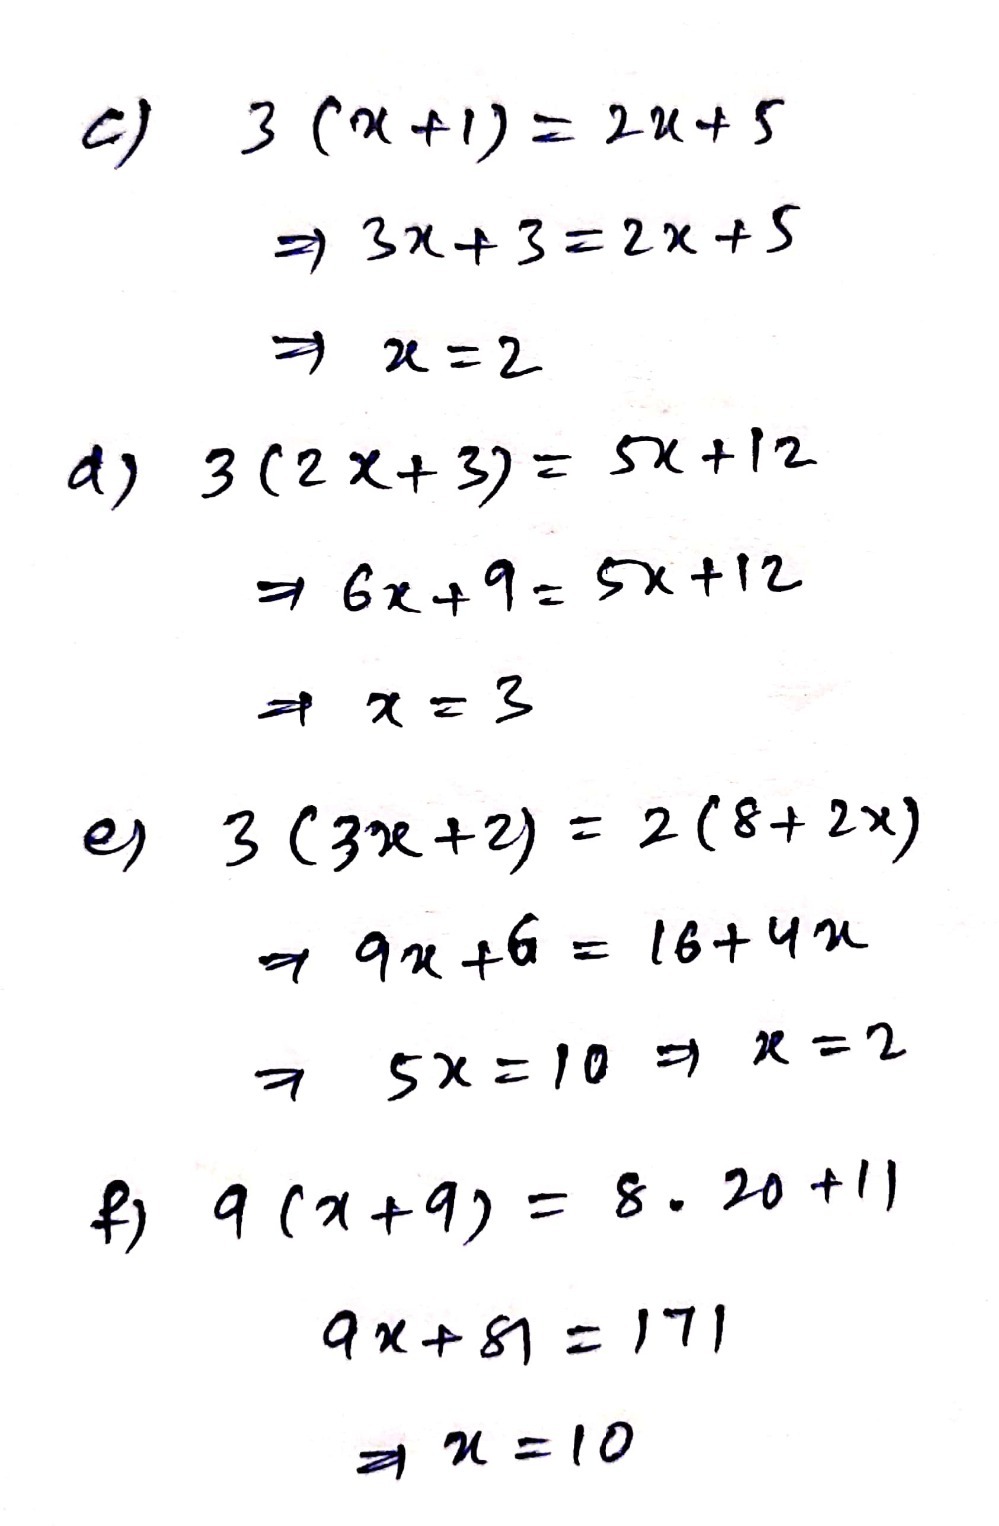 c) 3 (x+1) = 2x+5
⇒ 3x+3 = 2x+5
⇒ x=2
d) 3(2x+3) = 5x+12
⇒ 6x+9 = 5x+12
⇒ x = 3
e) 3 (3x+2) = 2(8+2x)
⇒ 9x+6 = 16+4x
⇒ 5x=10 ⇒ x=2
f) 9 (x+9) = 8. 20+11
9x+81 = 171
⇒ x=10